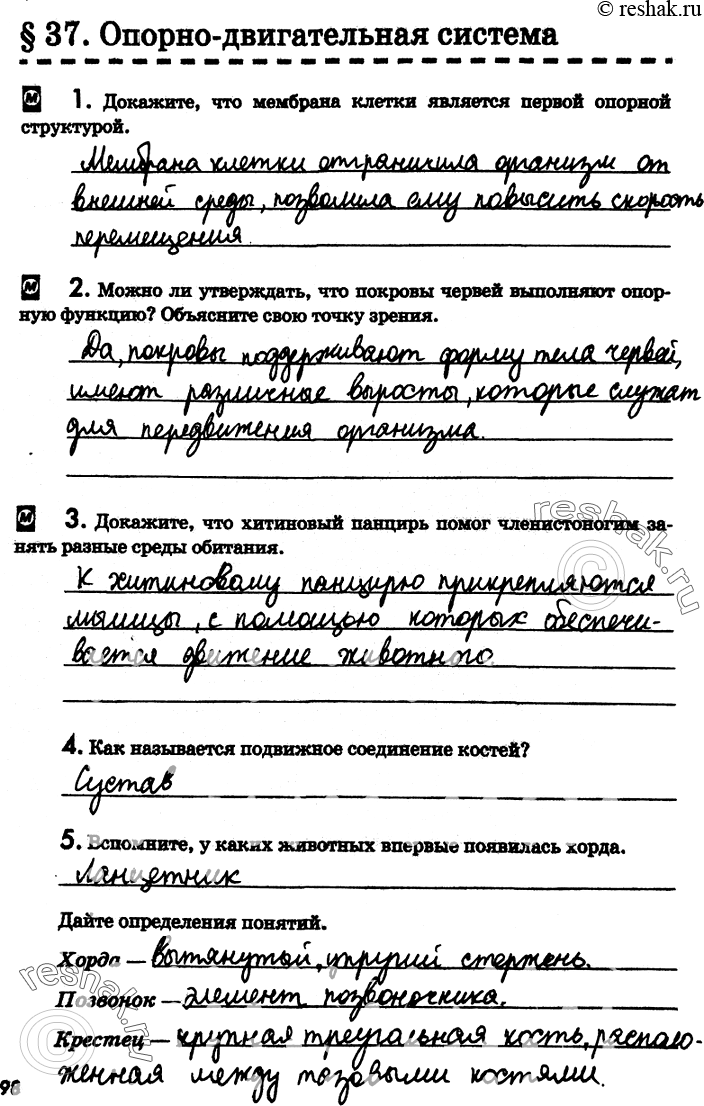 © reshak.ru
§ 37. Опорно-двигательная система
М 1. Докажите, что мембрана клетки является первой опорной
структурой.
Мембрана клетки отграничила организм от
внешней среды, позволила ему повысить скорость
перемещения.
М 2. Можно ли утверждать, что покровы червей выполняют опор-
ную функцию? Объясните свою точку зрения.
Да, покровы поддерживают форму тела червей,
имеют различные выросты, которые служат
для передвижения организма.
М 3. Докажите, что хитиновый панцирь помог членистоногим за-
нять разные среды обитания.
К хитиновому панцирю прикрепляются
мышцы, с помощью которых обеспечи-
вается движение животного.
4. Как называется подвижное соединение костей?
Сустав
5. Вспомните, у каких животных впервые появилась хорда.
Ланцетник
Дайте определения понятий.
Хорда — вытянутый, упругий стержень.
Позвонок — элемент позвоночника.
Крестец — крупная треугальная кость, располо-
женная между тазовыми костями.
98
reshak.ru ©
reshak.ru ©